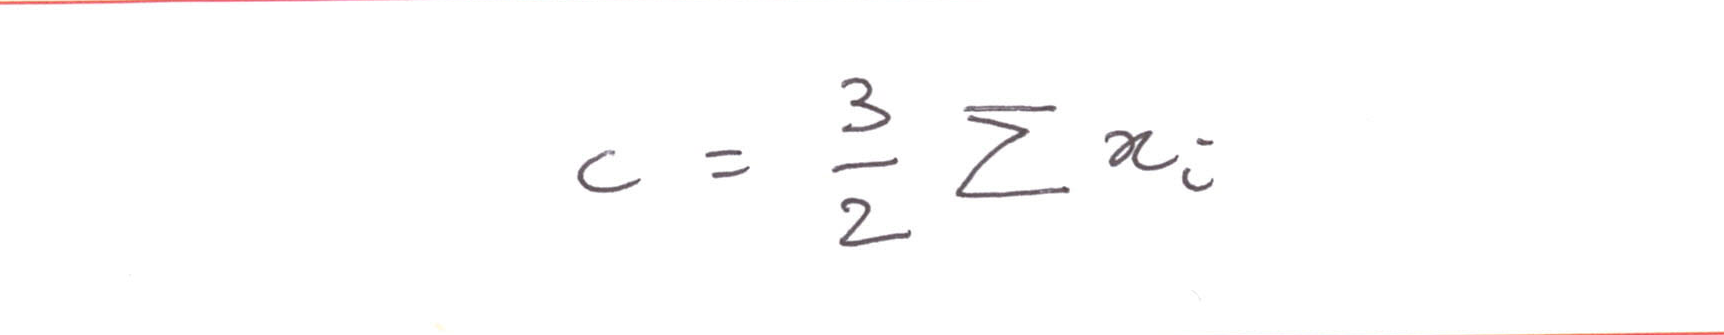 c = 3/2 ∑ xᵢ